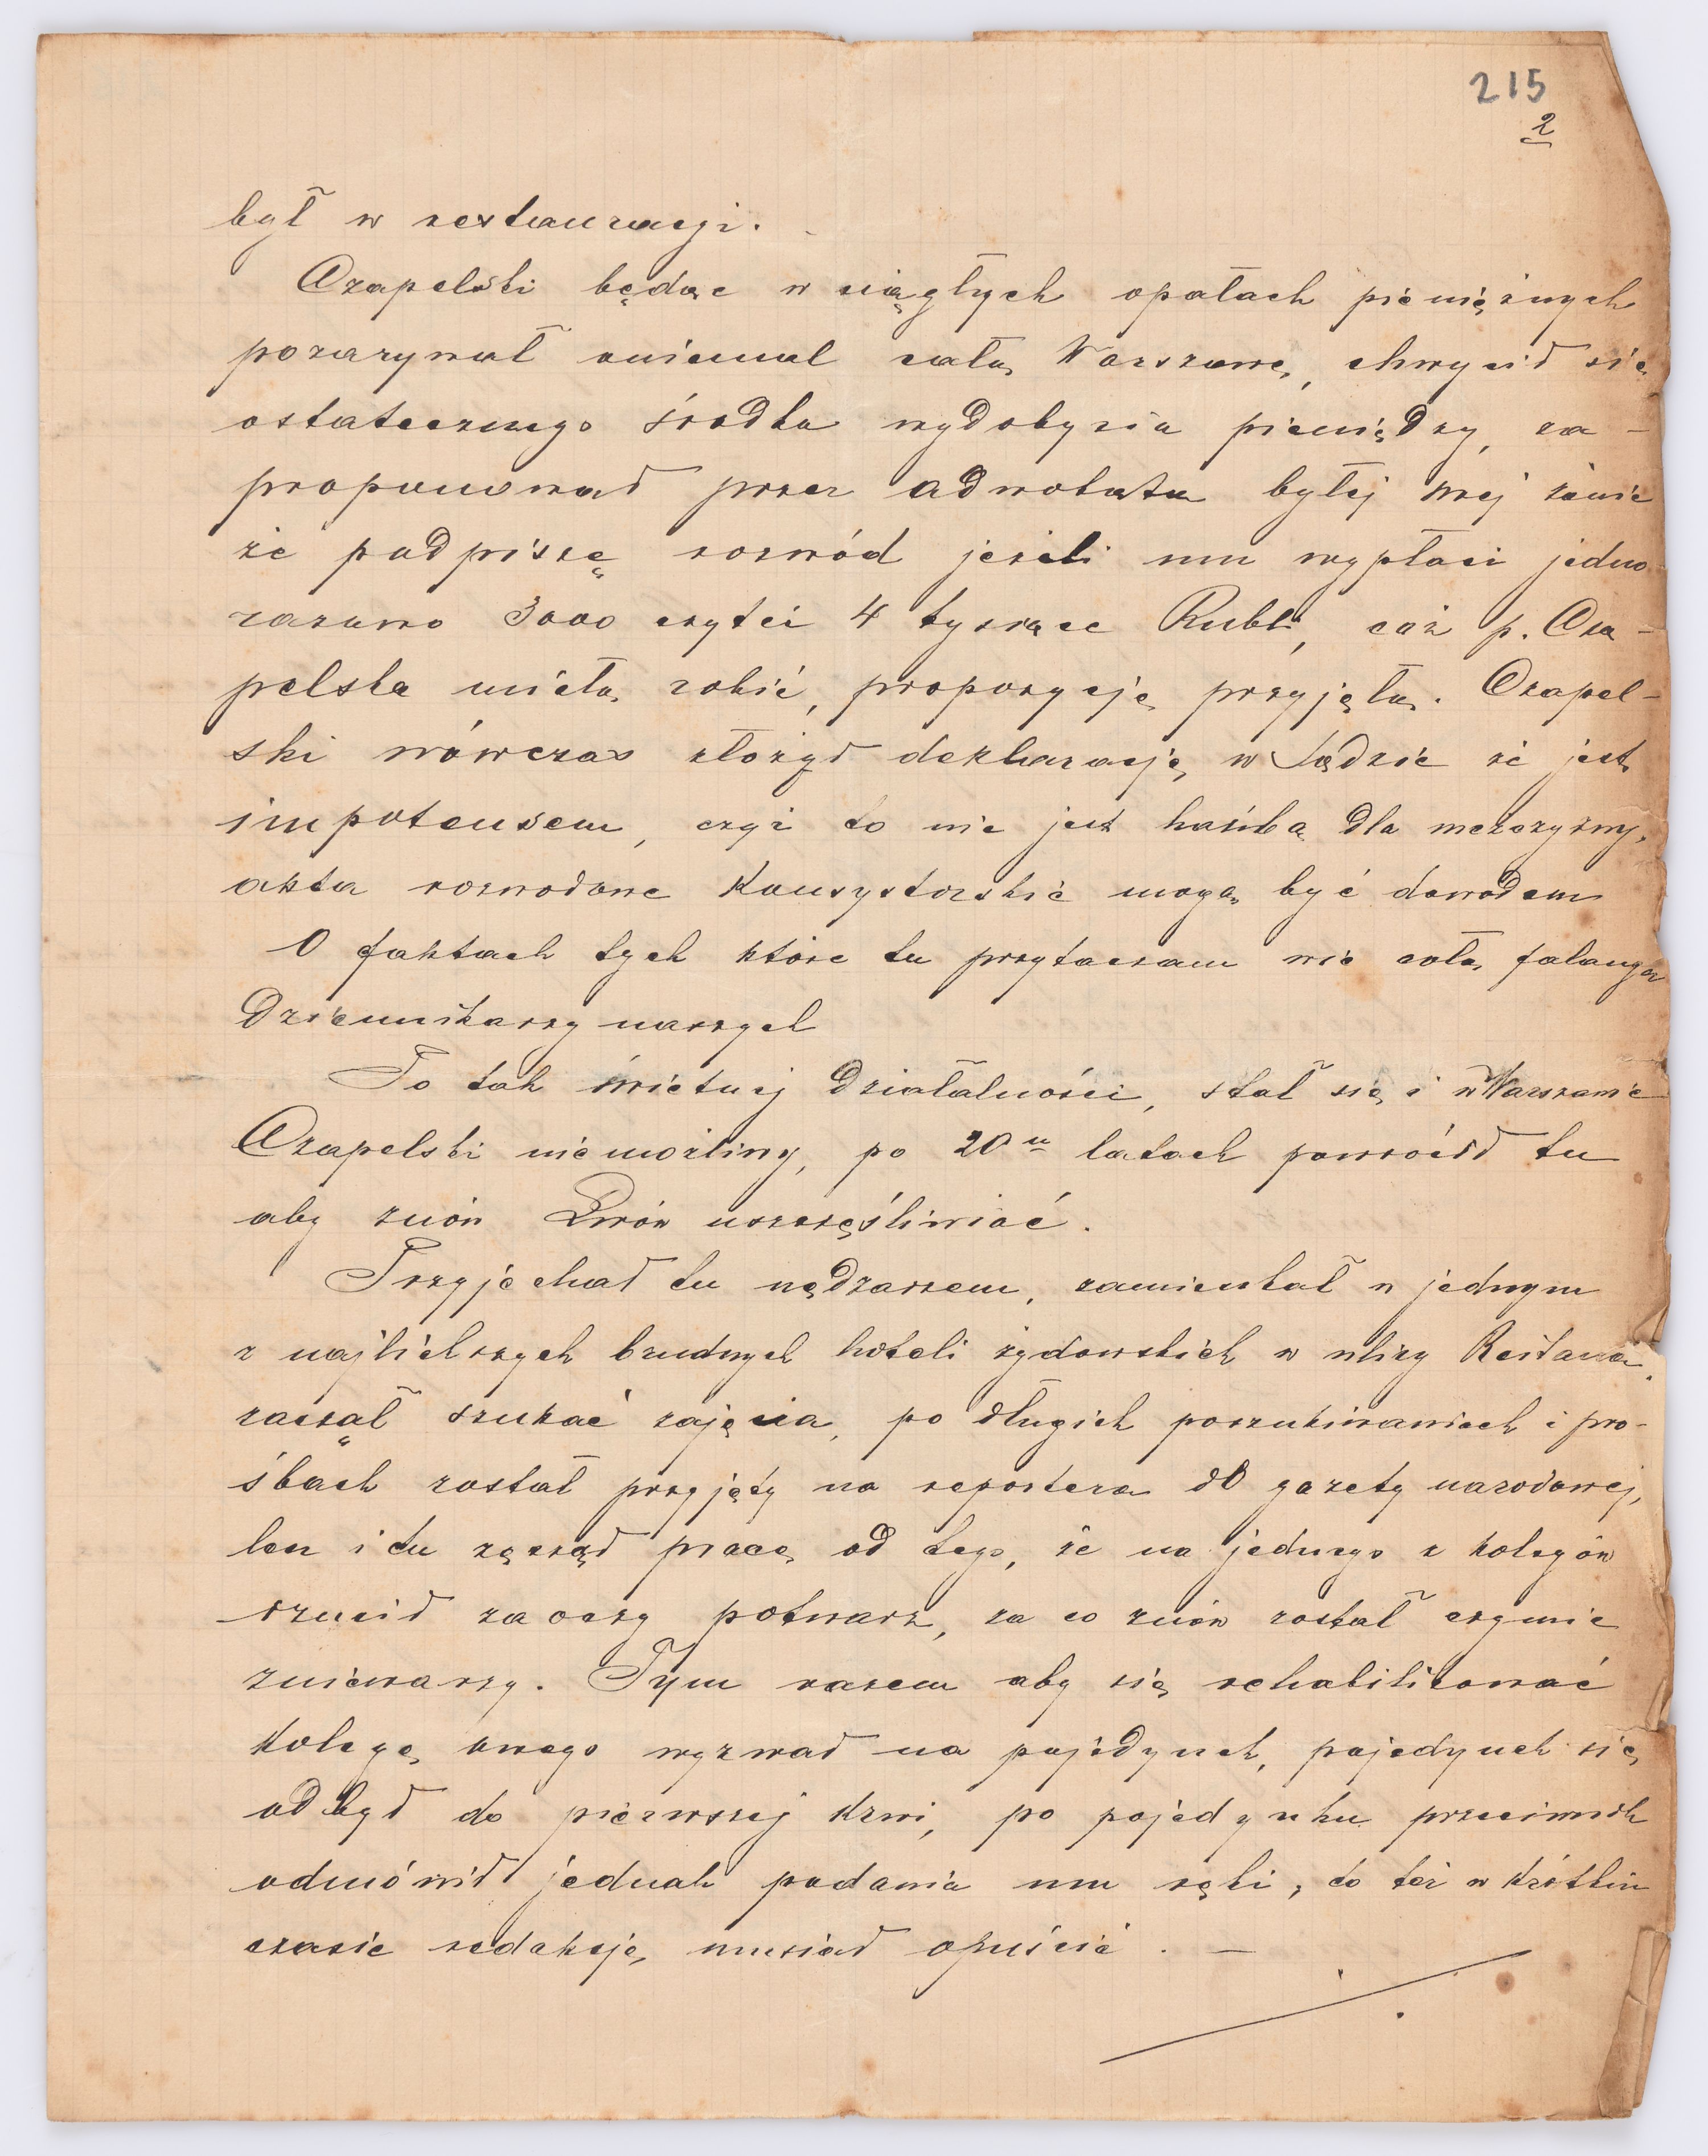 215
2
był w restauracyi.
Czapelski będąc w ciągłych opałach pieniężnych
pozarywał niemal całą Warszawę, chwycił się
ostatecznego środka wydobycia pieniędzy, za-
proponował przez adwokata byłej swej żonie
że podpiszę rozwód jeżeli mu wypłaci jedno
razowo 3000 czytei 4 tysiące Rubli, cóż p. Cza-
pelska miała robić, propozycję przyjęła. Czapel-
ski wówczas złożył deklaracje, w Sądzie że jest
impotensem, czyż to nie jest hańbą dla mężczyzny,
akta rozwodowe Konsystorskie mogą być dowodem
O faktach tych które tu przytaczam wie cała falanga
Dziennikarzy naszych
Po tak świetnej Działalności, stał się i w Warszawie
Czapelski niemożliwy, po 20u latach powrócił tu
aby znów Lwów uszczęśliwiać.
Przyjechał tu nędzarzem, zamieszkał w jednym
z najlichszych brudnych hoteli żydowskich w ulicy Rejtana,
zaczął szukać zajęcia, po długich poszukiwaniach i pro-
śbach został przyjęty na reportera do gazety narodowej,
len i tu zaczął pracę od tego, że na jednego z kolegów
rzucił za oczy potwarz, za co znów został czynnie
znieważy. Tym razem aby się rehabilitować
kolegę owego wyzwał na pojedynek, pojedynek się
odbył do pierwszej krwi, po pojedynku przeciwnik
odmówił jednak podania mu ręki, to też w krótkim
czasie redakcję musiał opuścić. —